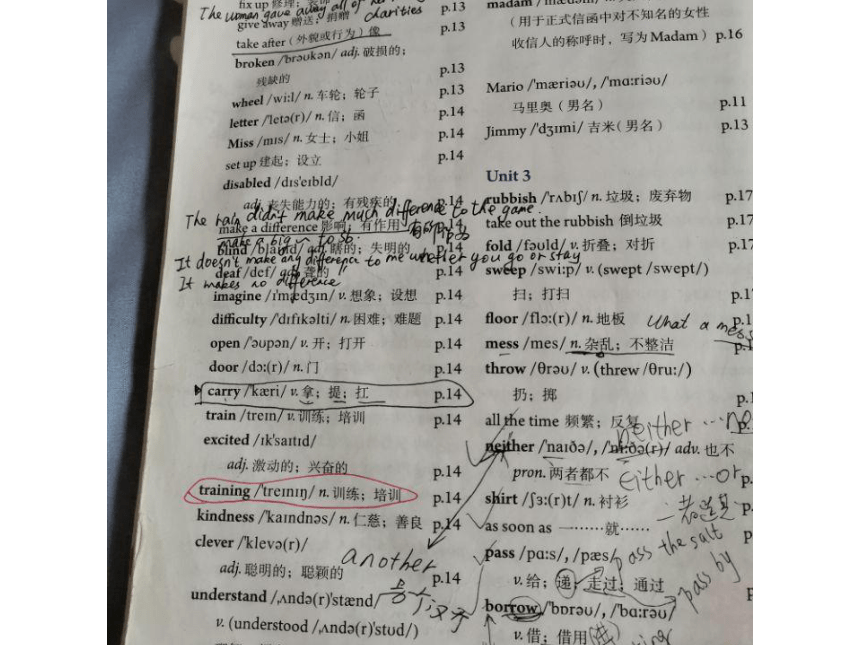 fix up 修理；装饰
The woman gave away all of her
give away 赠送；捐赠 p.13
charities
take after（外貌或行为）像 p.13
broken /'brəʊkən/ adj. 破损的；
残缺的 p.13
wheel /wi:l/ n. 车轮；轮子 p.13
letter /'letə(r)/ n. 信；函 p.14
Miss /mɪs/ n. 女士；小姐 p.14
set up 建起；设立 p.14
disabled /dɪs'eɪbld/
adj. 丧失能力的；有残疾的 p.14
The rain didn't make much difference to the game.
make a difference 影响；有作用 p.14
make a big ~ to sb.
blind /blaɪnd/ adj. 瞎的；失明的 p.14
It doesn't make any difference to me whether you go or stay
deaf /def/ adj. 聋的 p.14
It makes no difference"
imagine /ɪ'mædʒɪn/ v. 想象；设想 p.14
difficulty /'dɪfɪkəlti/ n. 困难；难题 p.14
open /'əʊpən/ v. 开；打开 p.14
door /dɔ:(r)/ n. 门 p.14
carry /'kæri/ v. 拿；提；扛 p.14
train /treɪn/ v. 训练；培训 p.14
excited /ɪk'saɪtɪd/
adj. 激动的；兴奋的 p.14
training /'treɪnɪŋ/ n. 训练；培训 p.14
kindness /'kaɪndnəs/ n. 仁慈；善良 p.14
clever /'klevə(r)/
another
adj. 聪明的；聪颖的 p.14
understand /ˌʌndə(r)'stænd/
v. (understood /ˌʌndə(r)'stʊd/)
madam /'mædəm/
（用于正式信函中对不知名的女性
收信人的称呼时，写为 Madam）p.16
Mario /'mæriəʊ/, /'mɑ:riəʊ/
马里奥（男名） p.11
Jimmy /'dʒɪmi/ 吉米（男名） p.13
Unit 3
rubbish /'rʌbɪʃ/ n. 垃圾；废弃物 p.17
take out the rubbish 倒垃圾 p.17
fold /fəʊld/ v. 折叠；对折 p.17
sweep /swi:p/ v. (swept /swept/)
扫；打扫
floor /flɔ:(r)/ n. 地板
What a mess
mess /mes/ n. 杂乱；不整洁
throw /θrəʊ/ v. (threw /θru:/)
扔；掷
all the time 频繁；反复
neither ···no
neither /'naɪðə/, /'ni:ðə(r)/ adv. 也不
pron. 两者都不
either ···or
shirt /ʃɜ:(r)t/ n. 衬衫
as soon as ————就······
pass /pɑ:s/, /pæs/
pass the salt
v. 给；递；走过；通过
pass by
borrow /'bɒrəʊ/, /'bɑ:rəʊ/
v. 借；借用